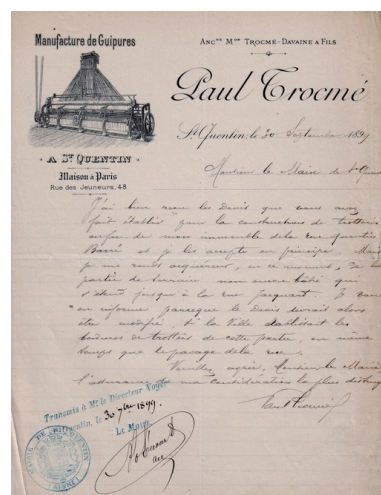 Manufacture de Guipures
ANC.ᴺᴱ M.ᴼᴺ TROCMÉ-DAVAINE & FILS
Paul Trocmé
A Sᵀ QUENTIN
Maison à Paris
Rue des Jeuneurs, 48
Sᵗ Quentin, le 20 Septembre 1899
Monsieur le Maire de St Quentin
J'ai bien reçu les Devis que vous avez
fait établir pour la construction de trottoirs
autour de mon immeuble de la rue Quentin
Barré et je les accepte en principe. Mais
je me rends acquéreur, en ce moment, de la
partie de terrain non encore bâtie qui
s'étend jusqu'à la rue Jacquart. Je
en informe parce que le Devis devrait alors
être modifié, si la Ville établissait les
bordures de trottoir de cette partie, en même
temps que le pavage de la rue.
Veuillez agréer, Monsieur le Maire,
l'assurance de ma considération la plus disting
Paul Trocmé
Transmis à Mr le Directeur Voyer
St Quentin, le 30 7bre 1899.
Le Maire,